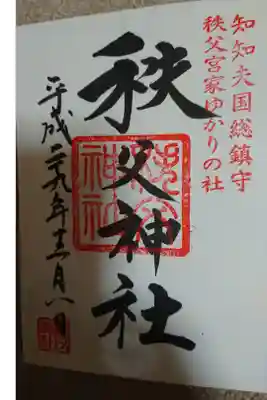 知知夫国総鎮守
秩父宮家ゆかりの社
秩父神社
平成二十九年十一月八日